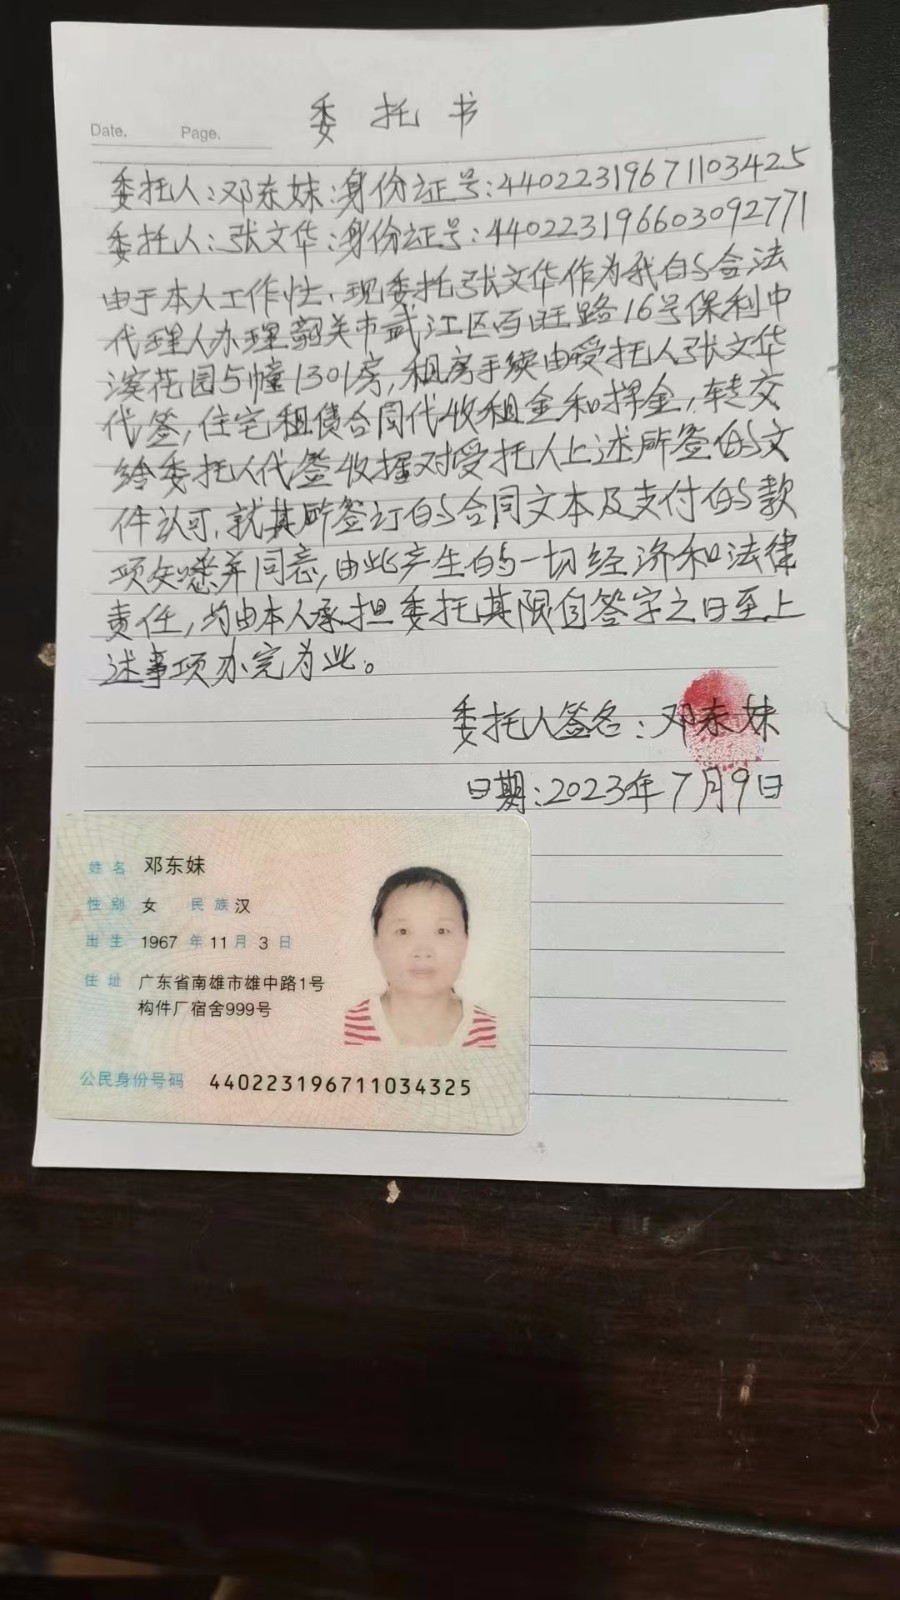 Date. Page.
委托书
委托人:邓东妹:身份证号:44022319671103425
委托人:张文华:身份证号:440223196603092771
由于本人工作忙、现委托张文华作为我的合法
代理人办理韶关市武江区百旺路16号保利中
溪花园5幢1301房,租房手续由受托人张文华
代签,住宅租赁合同代收租金和押金,转交
给委托人代签收据对受托人上述所签的文
件认可,就其所签订的合同文本及支付的款
项知悉并同意,由此产生的一切经济和法律
责任,均由本人承担委托其限自签字之日至上
述事项办完为止。
委托人签名:邓东妹
日期:2023年7月9日
姓名 邓东妹
性别 女 民族 汉
出生 1967 年 11 月 3 日
住址 广东省南雄市雄中路1号
构件厂宿舍999号
公民身份号码 440223196711034325